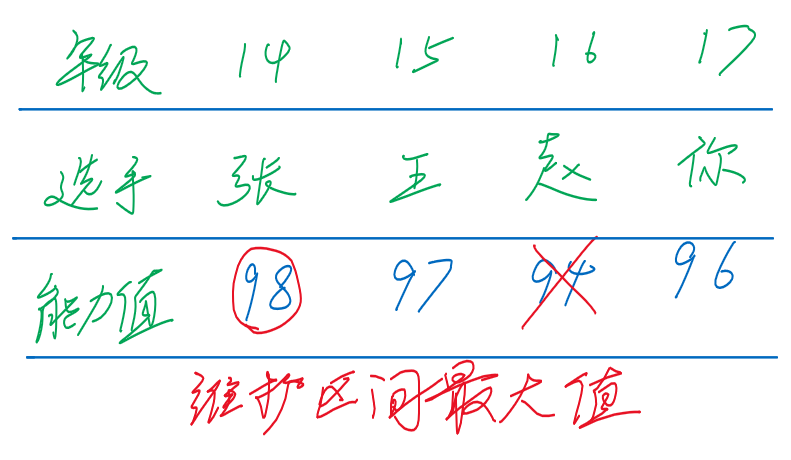 年级 14 15 16 17
选手 张 王 赵 你
能力值 98 97 94 96
维护区间最大值